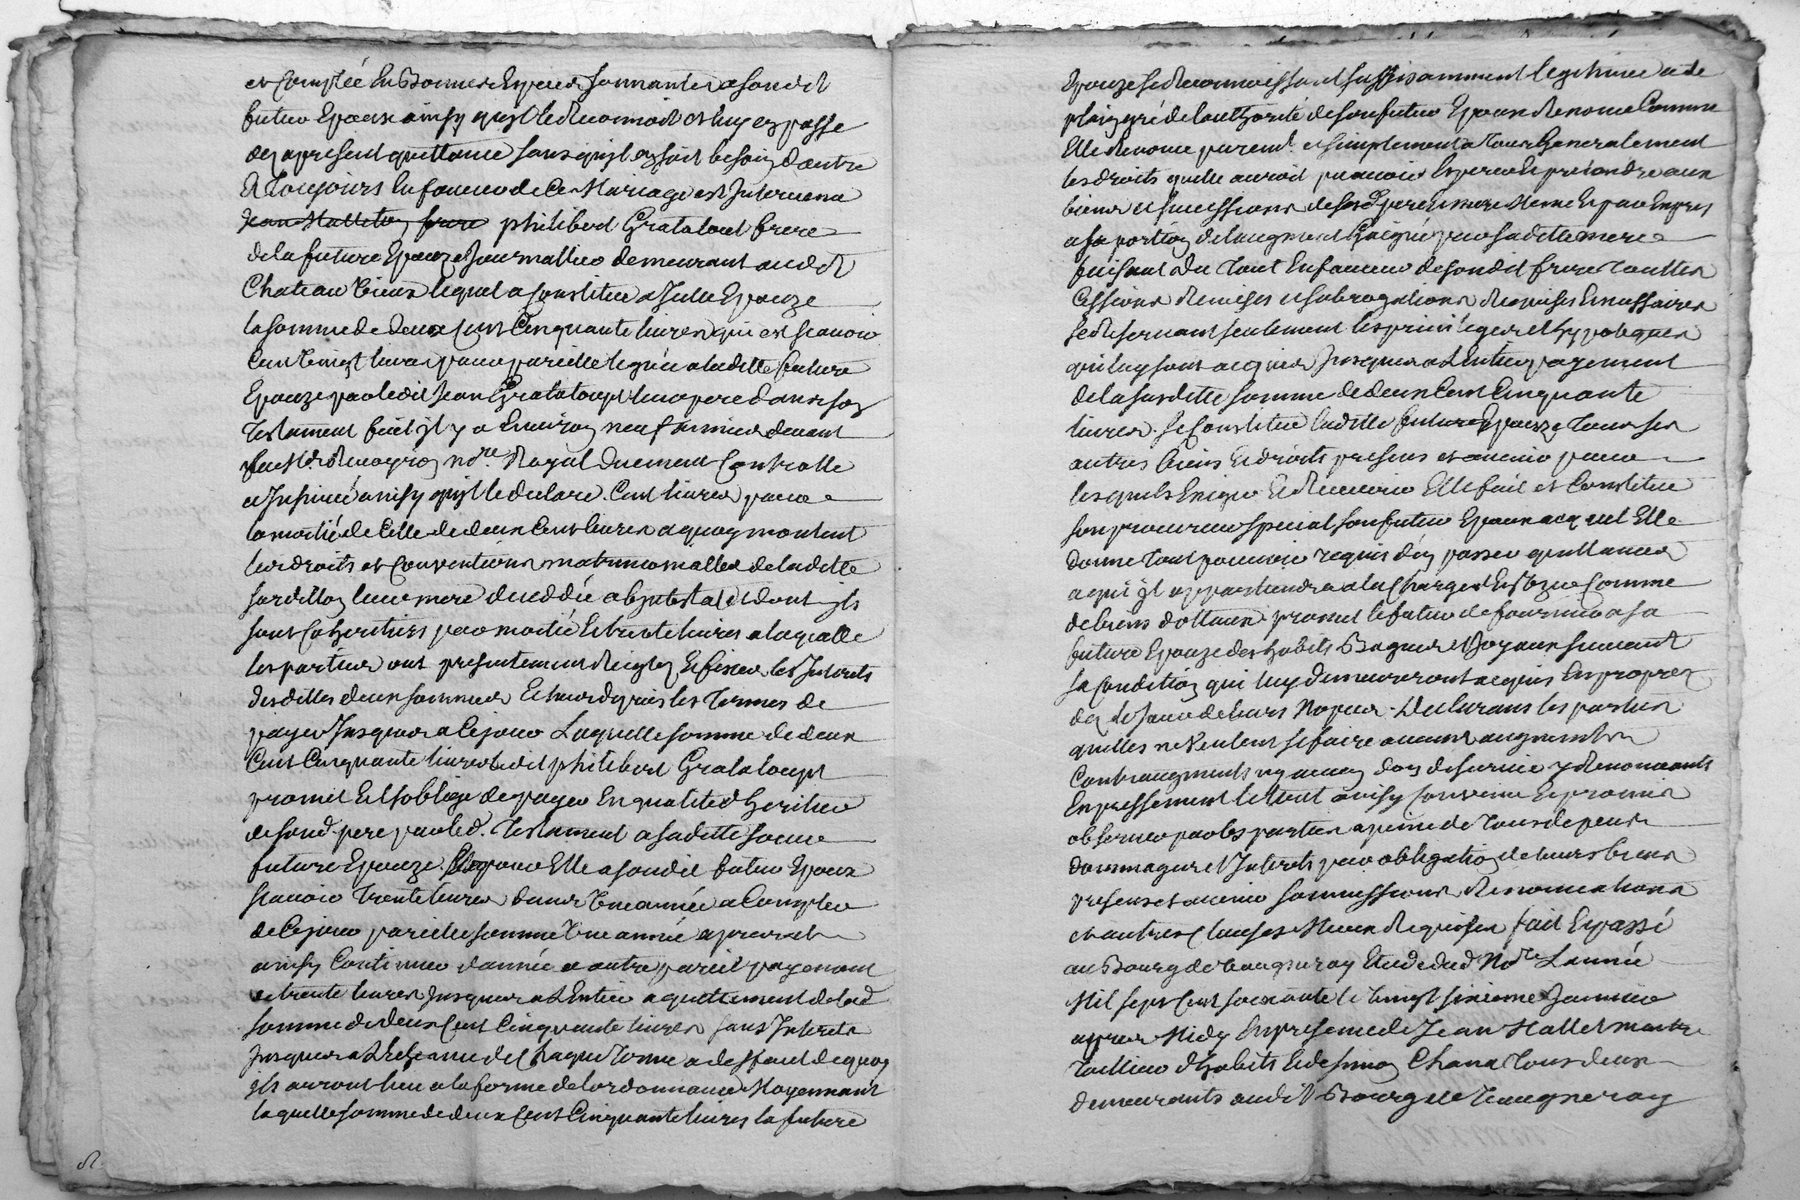 et Comptée En Bonnes Especes Sonnantes a sondit
futur Epoux ainsy quil le Reconnoit et luy en passe
des apresent quittance sans quil en soit besoin dautre
Et Toujours En faveur de Ce Mariage est Intervenu
Jean Malleton frere philibert Grataloud frere
de la future Epouze Journallier demeurant audit
Chateau Vieux lequel a Constitué a Jcelle Epouze
la somme de deux Cent Cinquante livres qui est scavoir
Cent Vingt livres pour pareille leguée a laditte future
Epouze par ledit Jean Grataloup leur pere dans son
Testament fait il y a Environ neuf années devant
ndre Royal duement Controllé
et Insinué ainsy quil le declare. Cent livres pour
la moitié de Celle de deux Cent livres a quoy montent
les droits et Conventions matrimonialles de laditte
leur mere decedée abintestat et dont ils
sont Coheritiers par moitié Et trente livres a laquelle
les parties ont presentement Reiglés Et fixés les Interets
desdittes deux sommes Echeus depuis les Termes de
payer Jusques a Ce jour Laquelle somme de deux
Cent Cinquante livres ledit philibert Grataloup
promet Et soblige de payer En qualité dheritier
de sond. pere par led. Testament a saditte soeur
future Epouze. pour Elle a sondit futur Epoux
scavoir Trente livres dans Une année a Compter
de Ce jour pareille somme Une année apres et
ainsy Continuer dannée a autre pareil payement
de trente livres Jusques a LEntier aquittement de lad.
somme de deux Cent Cinquante livres sans Interets
Jusques a LEcheance de Chaque Terme a deffaut de quoy
ils auront lieu a la forme de lordonnance Moyennant
laquelle somme de deux Cent Cinquante livres la future
Epouze se Reconnoissant suffisamment legitimée a de
plain gré de lauthorité de son futur Epoux Renoncé Comme
Elle Renonce purement et simplement a Tous Generalement
les droits quelle auroit pu avoir Esperer Et pretendre aux
biens et successions de sesd. pere Et mere Meme Et par Expres
a sa portion de laugment Gaigné par saditte mere
faisant du Tout En faveur de sondit frere Touttes
Cessions Remises et subrogations Requises Et necessaires
se Reservant seulement les privileges et hypoteques
qui luy sont acquis Jusques a LEntier payement
de la susditte somme de deux Cent Cinquante
livres. se Constitue laditte future Epouze Tous ses
autres biens Et droits presens et avenir pour
lesquels Exiger Et Recevoir Elle fait et Constitue
son procureur special son futur Epoux auquel Elle
donne Tout pouvoir requis den passer quittances
a qui il appartiendra a la Charge dEn Comme
de biens dottaux promet le futur de fournir a sa
future Epouze des habits Bagues et Joyaux suivant
sa Condition qui luy demeureront acquis En propres
des le Jour de leurs Nopces. Declarans les parties
quelles ne Veulent se faire aucuns augments
Contraugments ny aucun don de survie y Renonceants
Expressement le tout ainsy Convenu Et promis
observer par les parties a peine de Tous depens
dommages et Interets par obligation de leurs biens
presens et avenir soumissions Renonciations
et autres Clauses Necessaires Requises fait Et passé
au Bourg de Vaugneray Etude dud. Ndre L'année
Mil sept Cent soixante le Vingt sixieme Janvier
apres Midy En presence de Jean Mallet maitre
Tailleur dhabits Et de Chana Tous deux
demeurants audit Bourg de Vaugneray